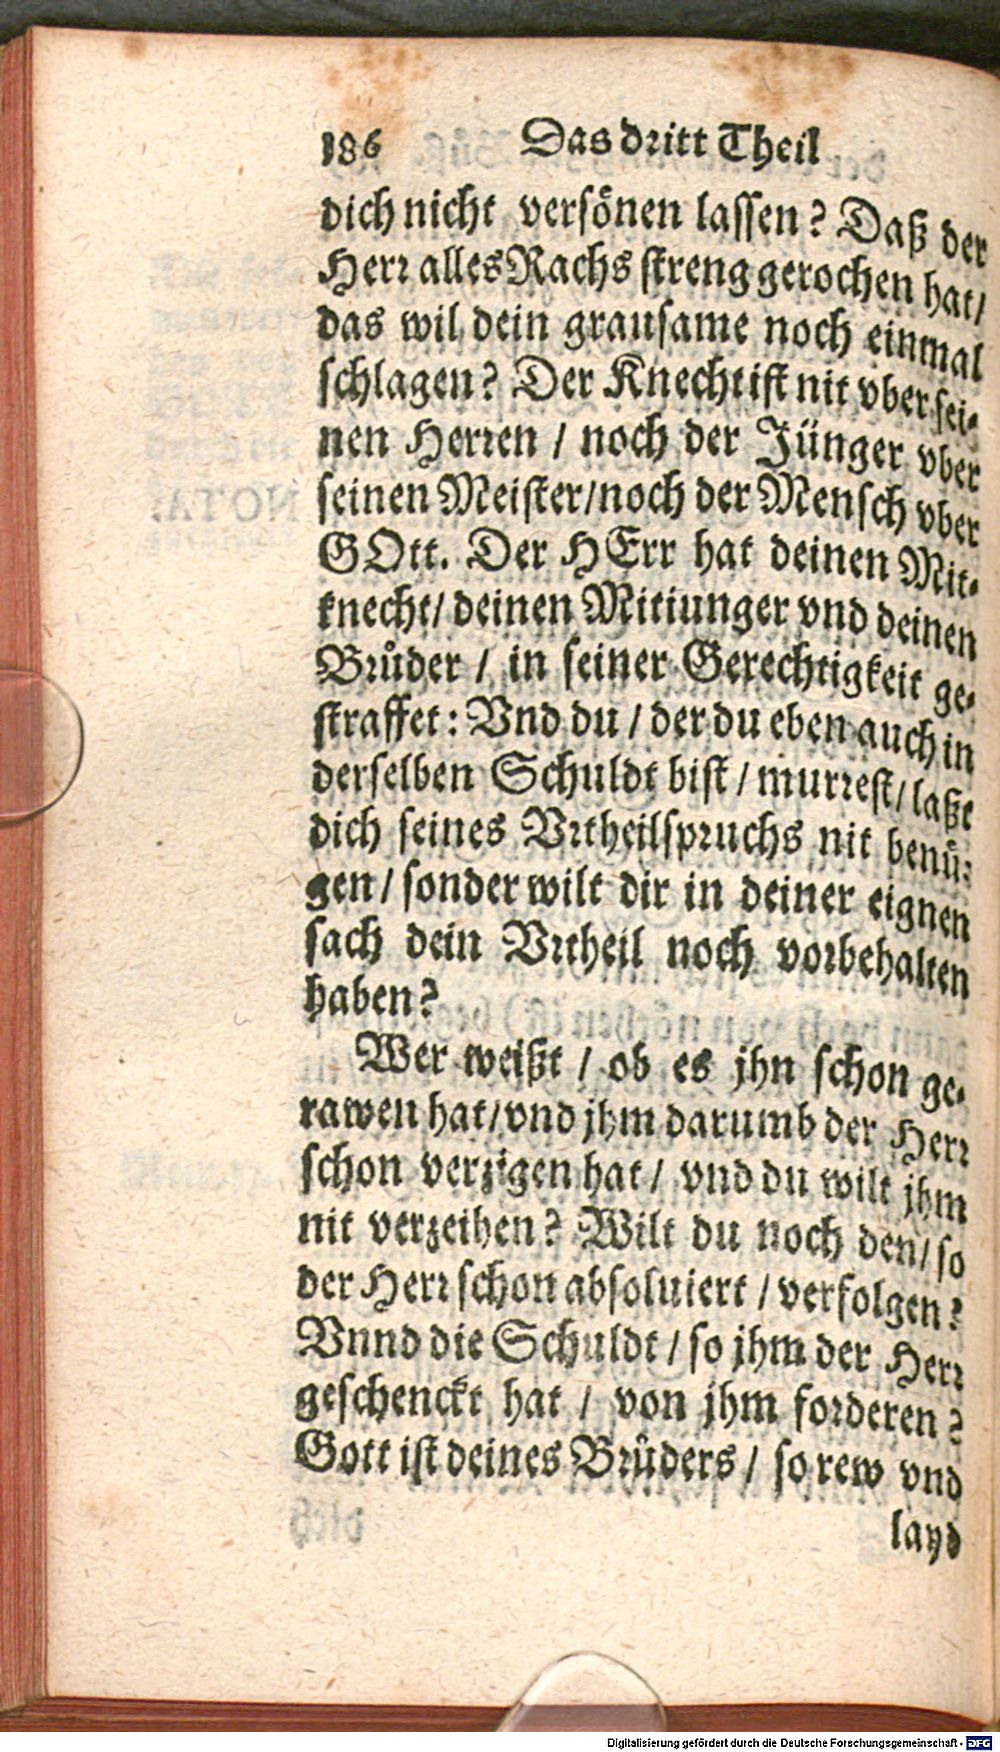 186 Das dritt Theil
dich nicht versönen lassen? Daß der
Herr alles Rachs streng gerochen hat/
das wil dein grausame noch einmal
schlagen? Der Knecht ist nit vber sei-
nen Herren / noch der Jünger vber
seinen Meister/noch der Mensch vber
GOtt. Der HErr hat deinen Mit-
knecht/ deinen Mitiunger vnd deinen
Brůder / in seiner Gerechtigkeit ge-
straffet: Vnd du / der du eben auch in
derselben Schuldt bist / murrest/ laßt
dich seines Vrtheilspruchs nit benů-
gen / sonder wilt dir in deiner eignen
sach dein Vrtheil noch vorbehalten
haben?
Wer weißt / ob es jhn schon ge-
rawen hat/vnd jhm darumb der Herr
schon verzigen hat / vnd du wilt jhm
nit verzeihen? Wilt du noch den/ so
der Herr schon absoluiert / verfolgen?
Vnnd die Schuldt / so jhm der Herr
geschenckt hat / von jhm forderen?
Gott ist deines Brůders / so rew vnd
layd
Digitalisierung gefördert durch die Deutsche Forschungsgemeinschaft - DFG